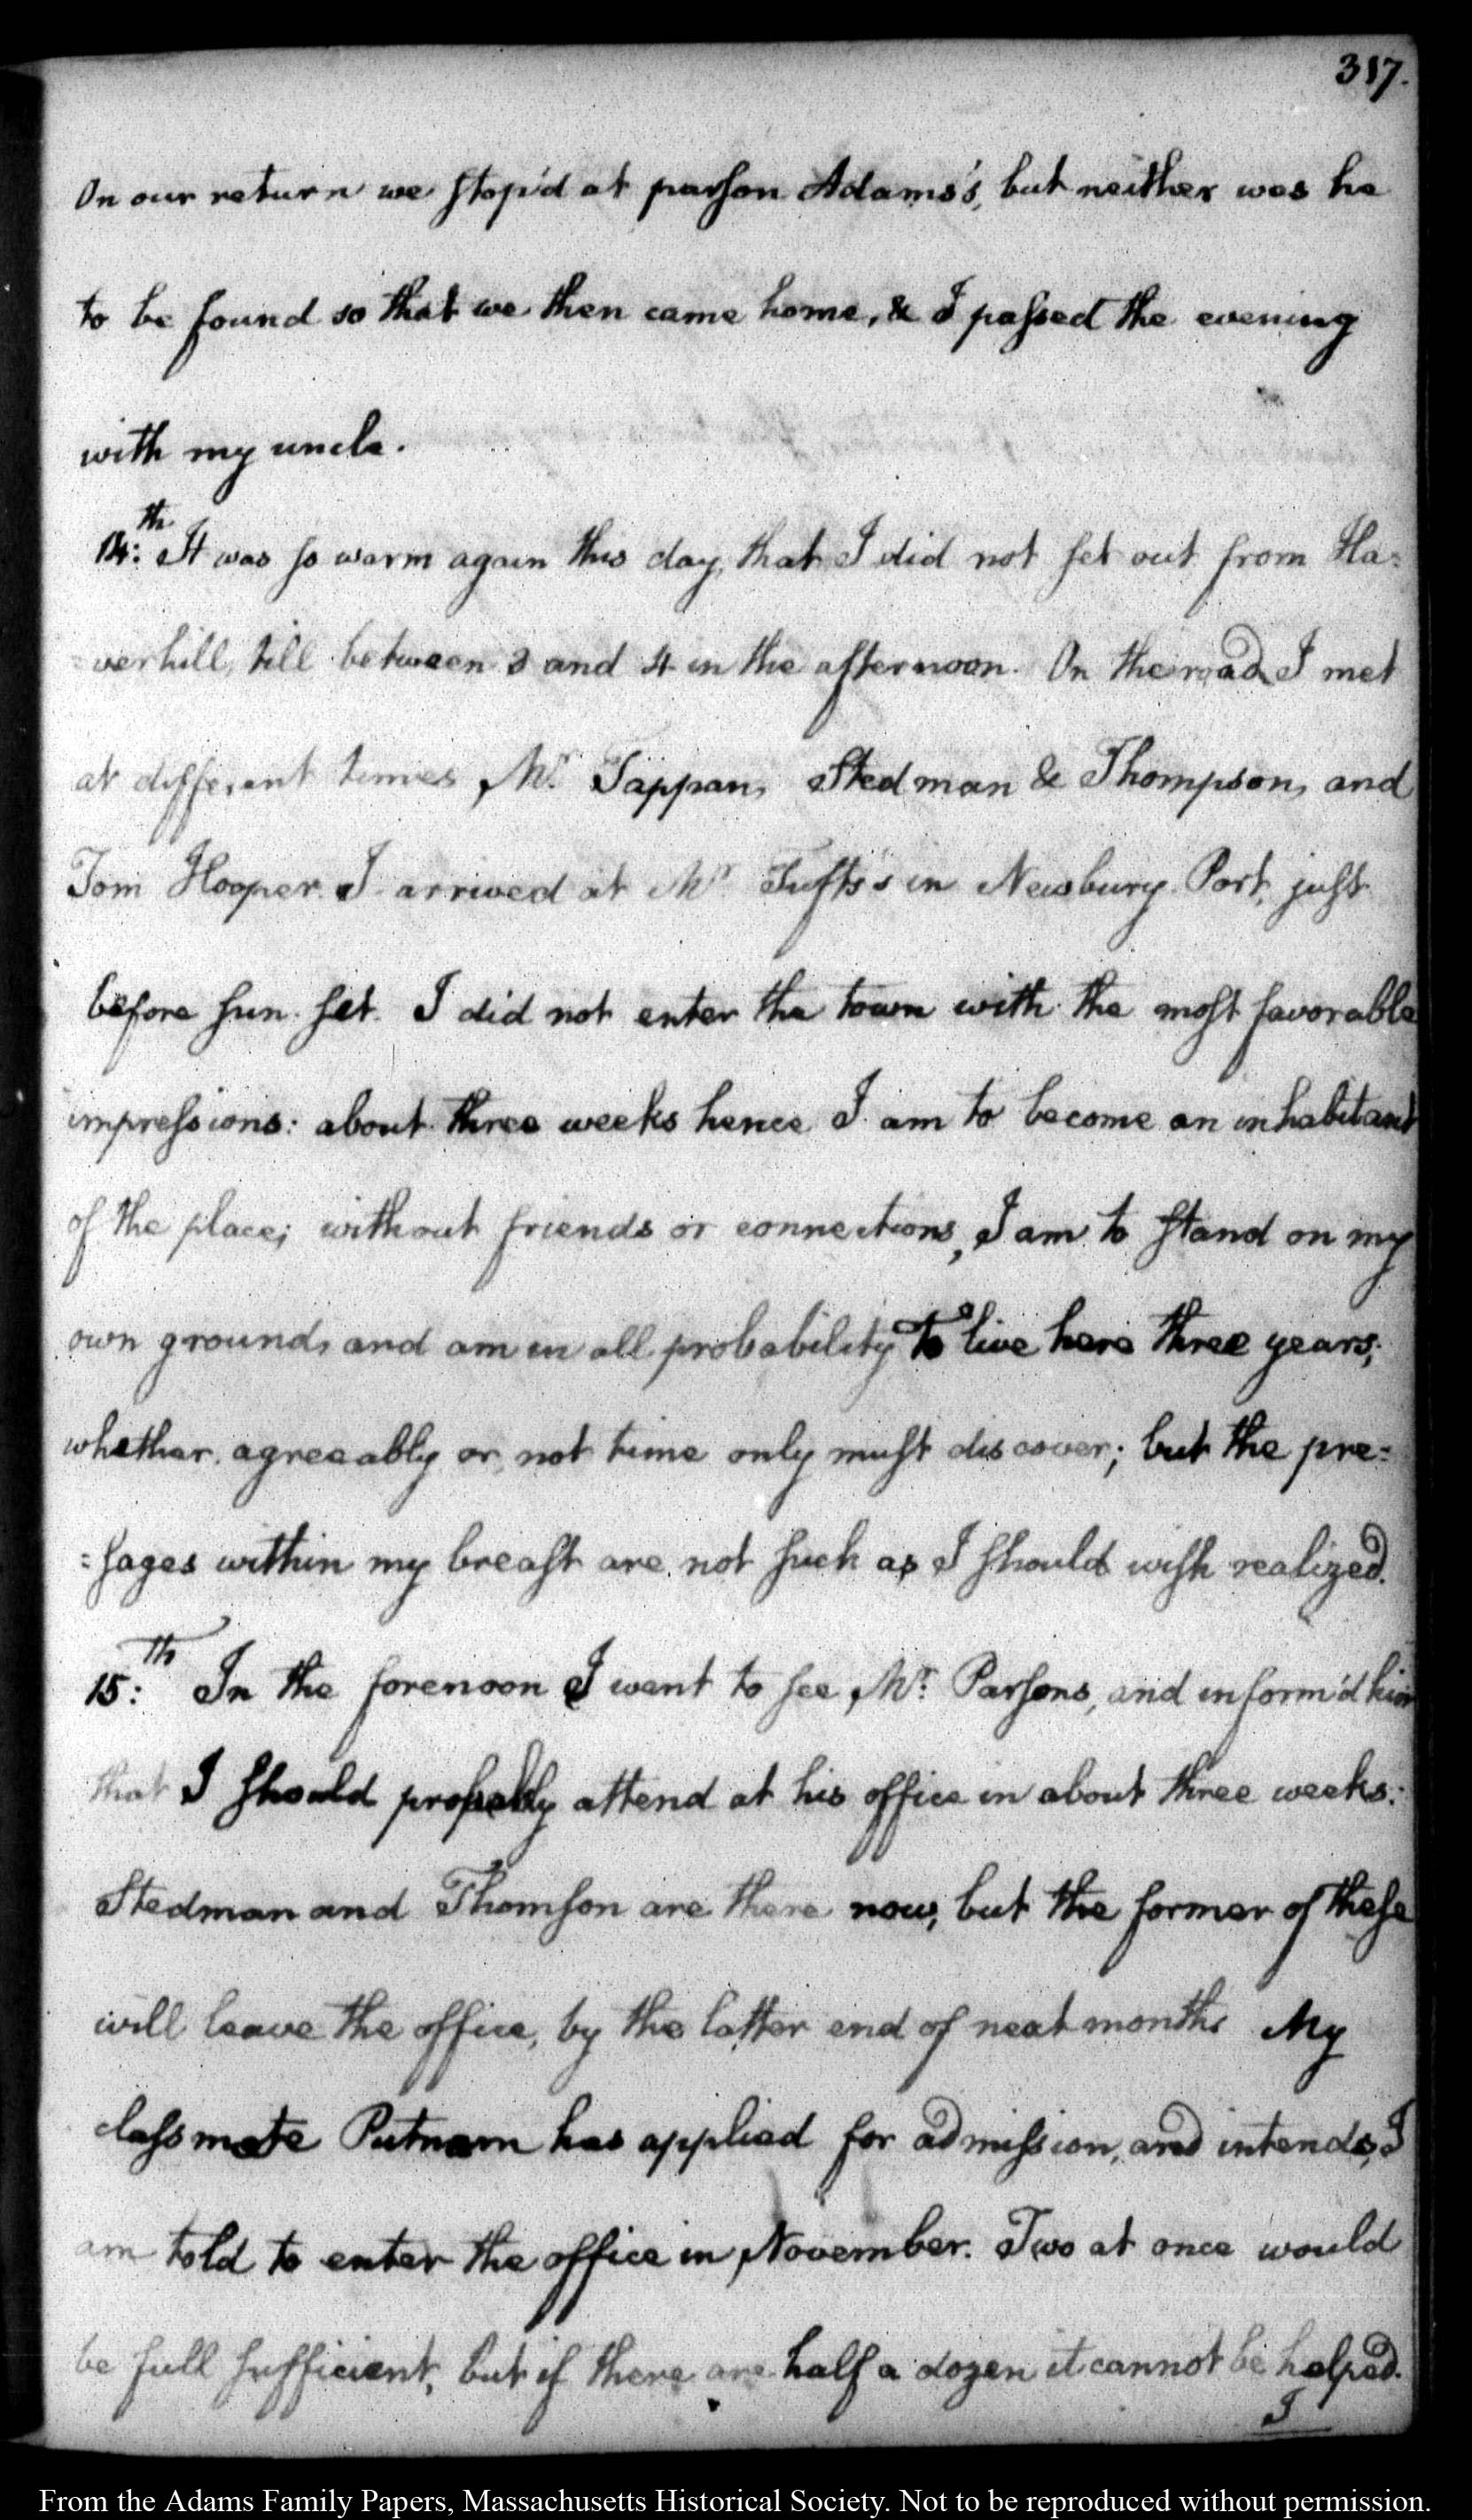 317.
On our return we stop'd at parson Adams's, but neither was he
to be found so that we then came home, & I passed the evening
with my uncle.
14:th It was so warm again this day, that I did not set out from Ha=
=verhill, till between 3 and 4 in the afternoon. On the road I met
at different times Mr. Tappan, Stedman & Thompson, and
Tom Hooper. I arrived at Mr. Tufts's in Newbury-Port, just
before sun-set. I did not enter the town with the most favorable
impressions: about three weeks hence I am to become an inhabitant
of the place; without friends or connections, I am to stand on my
own ground, and am in all probability to live here three years;
whether agreeably or not time only must discover; but the pre=
=sages within my breast are not such as I should wish realized.
15:th In the forenoon I went to see Mr. Parsons, and inform'd him
that I should probably attend at his office in about three weeks:
Stedman and Thomson are there now, but the former of these
will leave the office, by the latter end of next month. My
classmate Putnam has applied for admission, and intends, I
am told to enter the office in November. Two at once would
be full sufficient, but if there are half a dozen it cannot be helped.
I
From the Adams Family Papers, Massachusetts Historical Society. Not to be reproduced without permission.